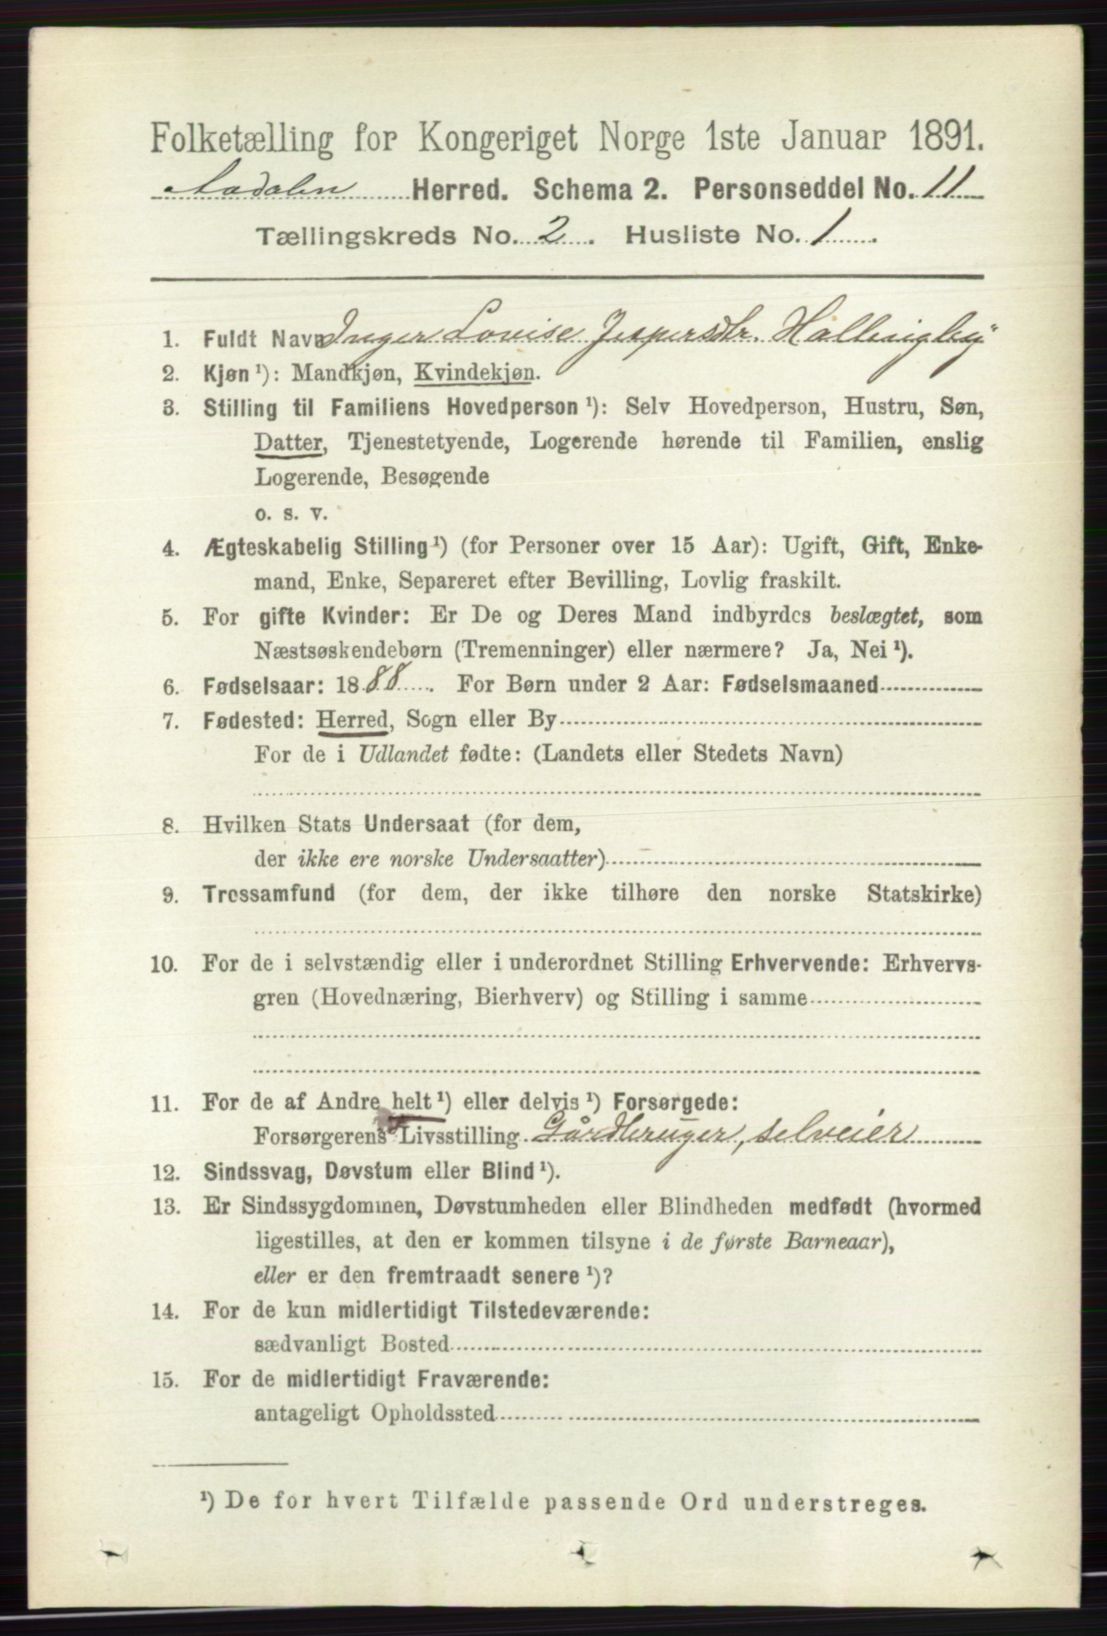 Folketælling for Kongeriget Norge 1ste Januar 1891.
Aadalen Herred. Schema 2. Personseddel No. 11
Tællingskreds No. 2. Husliste No. 1.
1. Fuldt Navn Inger Lovise Jespersdtr. Hallingby
2. Kjøn ¹): Mandkjøn, Kvindekjøn.
3. Stilling til Familiens Hovedperson ¹): Selv Hovedperson, Hustru, Søn,
Datter, Tjenestetyende, Logerende hørende til Familien, enslig
Logerende, Besøgende
o. s. v.
4. Ægteskabelig Stilling ¹) (for Personer over 15 Aar): Ugift, Gift, Enke-
mand, Enke, Separeret efter Bevilling, Lovlig fraskilt.
5. For gifte Kvinder: Er De og Deres Mand indbyrdes beslægtet, som
Næstsøskendebørn (Tremenninger) eller nærmere? Ja, Nei ¹).
6. Fødselsaar: 1888. For Børn under 2 Aar: Fødselsmaaned
7. Fødested: Herred, Sogn eller By
For de i Udlandet fødte: (Landets eller Stedets Navn)
8. Hvilken Stats Undersaat (for dem,
der ikke ere norske Undersaatter)
9. Trossamfund (for dem, der ikke tilhøre den norske Statskirke)
10. For de i selvstændig eller i underordnet Stilling Erhvervende: Erhvervs-
gren (Hovednæring, Bierhverv) og Stilling i samme
11. For de af Andre helt ¹) eller delvis ¹) Forsørgede:
Forsørgerens Livsstilling Gårdbruger, selveier
12. Sindssvag, Døvstum eller Blind ¹).
13. Er Sindssygdommen, Døvstumheden eller Blindheden medfødt (hvormed
ligestilles, at den er kommen tilsyne i de første Barneaar),
eller er den fremtraadt senere ¹)?
14. For de kun midlertidigt Tilstedeværende:
sædvanligt Bosted
15. For de midlertidigt Fraværende:
antageligt Opholdssted
¹) De for hvert Tilfælde passende Ord understreges.